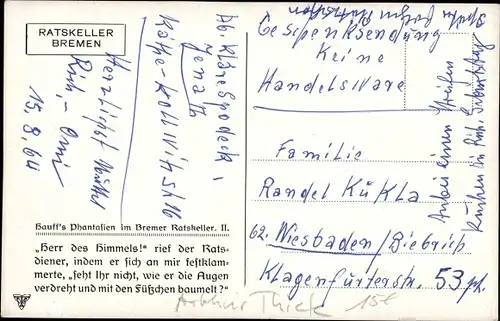 RATSKELLER
BREMEN
Ab: Kläre Spodeck,
Jena
Käthe-Kollwitz St 16
Herzlichst
15.8.64
Hauff's Phantasien im Bremer Ratskeller. II.
„Herr des Himmels!" rief der Rats-
diener, indem er sich an mir festklam-
merte, „seht Ihr nicht, wie er die Augen
verdreht und mit den Füßchen baumelt?"
Geschenksendung
Keine
Handelsware
Familie
Randel Kukla
62. Wiesbaden/Biebrich
Klagenfurterstr. 53 pt.
Anbei einen
Kuchen
Arthur Thiele 15€